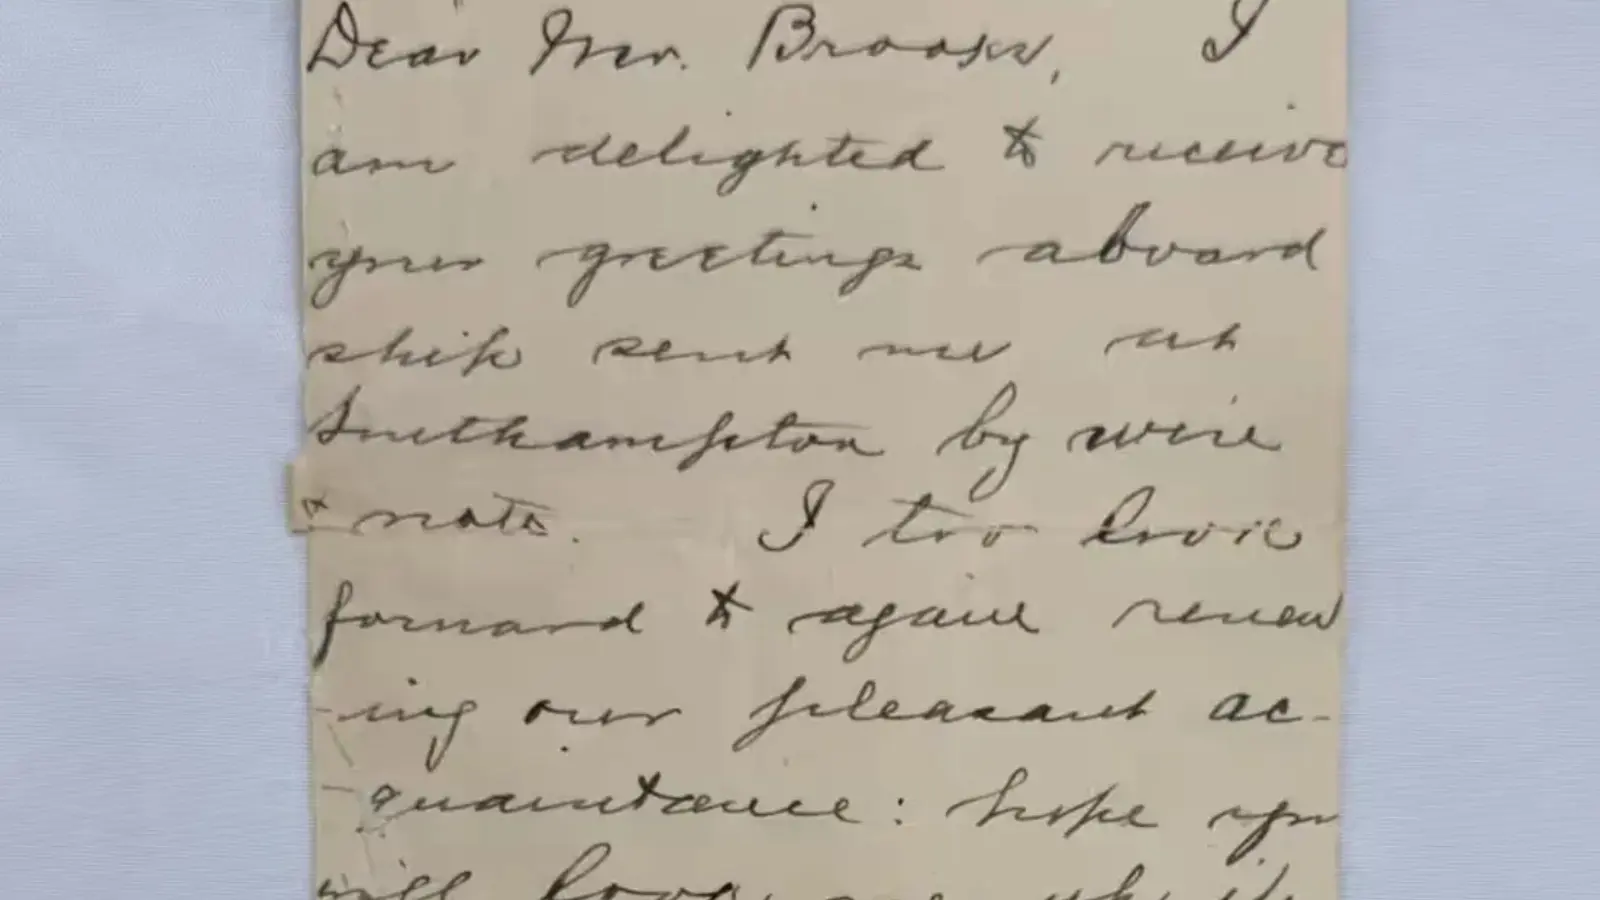 Dear Mr. Brooks, I
am delighted to receive
your greetings aboard
ship sent me at
Southampton by wire
& note. I too look
forward to again renew
-ing our pleasant ac-
-quaintance: hope you
will look me up if